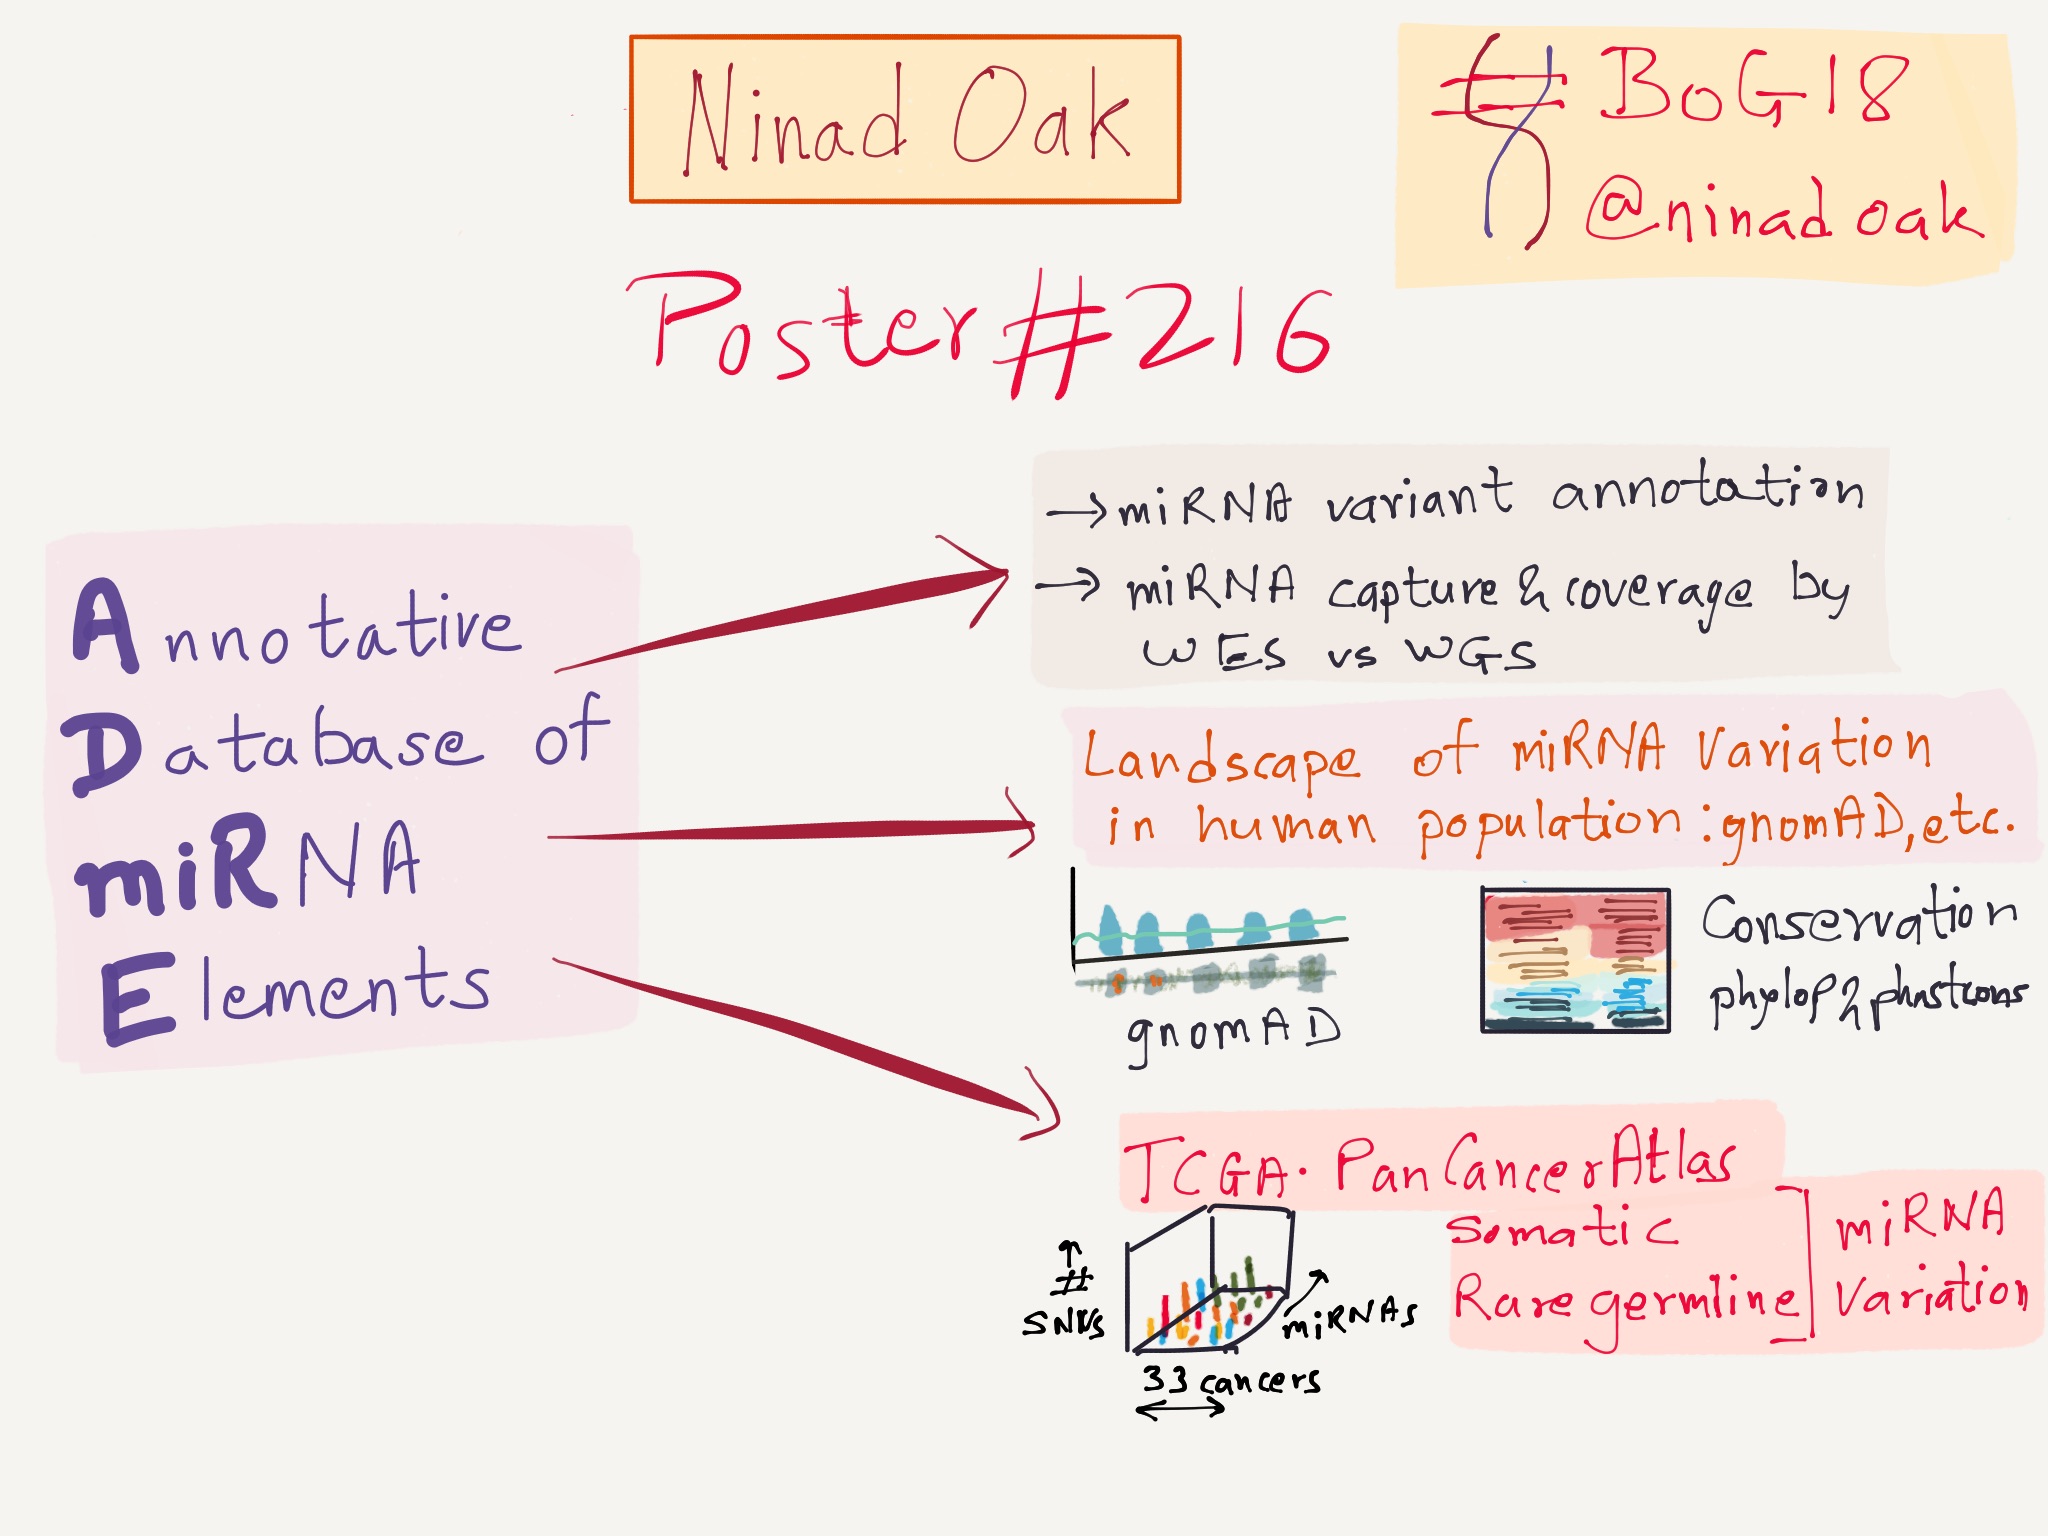 Ninad Oak
# BoG18
@ninadoak
Poster #216
Annotative
Database of
miRNA
Elements
→ miRNA variant annotation
→ miRNA capture & coverage by
WES vs WGS
Landscape of miRNA Variation
in human population: gnomAD, etc.
gnomAD
Conservation
phylop & phastcons
TCGA. PanCancerAtlas
Somatic
Rare germline
miRNA
Variation
↑
#
SNVs
miRNAs
33 cancers